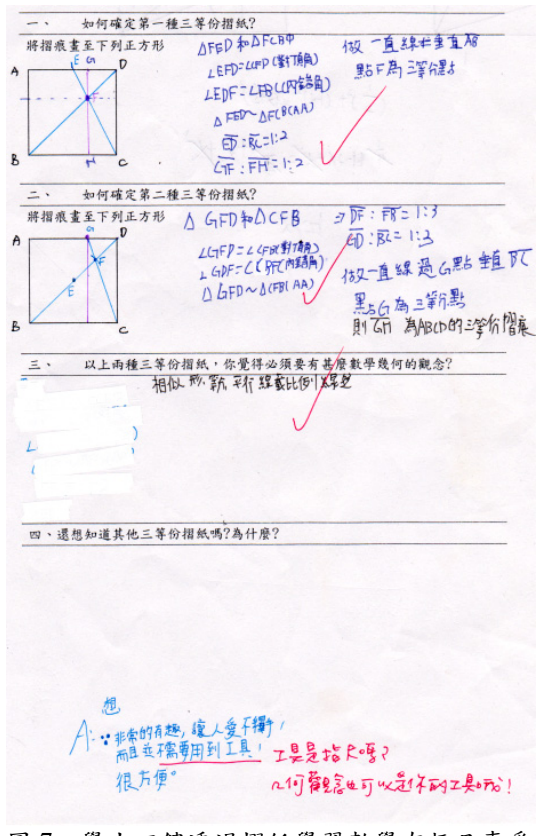 一、 如何確定第一種三等份摺紙?
將摺痕畫至下列正方形
A E G D
F
B H C
△FED和△FCB中
∠EFD=∠CFB(對頂角)
∠EDF=∠FBC(內錯角)
△FED~△FCB(AA)
ED:BC=1:2
GF:FH=1:2
做一直線垂直AB
點F為三等分點
二、 如何確定第二種三等份摺紙?
將摺痕畫至下列正方形
A G D
F
E
B C
△GFD和△CFB
∠GFD=∠CFB(對頂角)
∠GDF=∠CBF(內錯角)
△GFD~△CFB(AA)
⇒DF:FB=1:3
GD:BC=1:3
做一直線過G點垂直BC
點G為三等分點
則GH為ABCD的三等份摺痕
三、 以上兩種三等份摺紙,你覺得必須要有甚麼數學幾何的觀念?
相似形、平行線截比例線段
四、還想知道其他三等份摺紙嗎?為什麼?
想
A:∵非常的有趣,讓人愛不釋手,
而且並不需要用到工具!
很方便。
工具是指尺嗎?
幾何觀念也可以是你的工具哦!